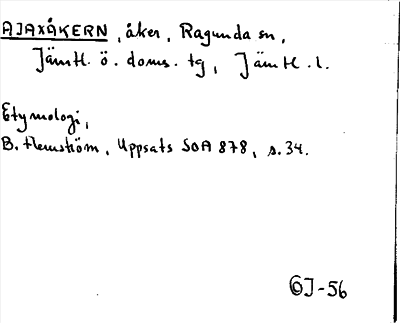 AJAXÅKERN, åker, Ragunda sn,
Jämtl. ö. doms. tg, Jämtl. l.
Etymologi,
B. Flemström, Uppsats SOA 878, s. 34.
ⒸJ-56